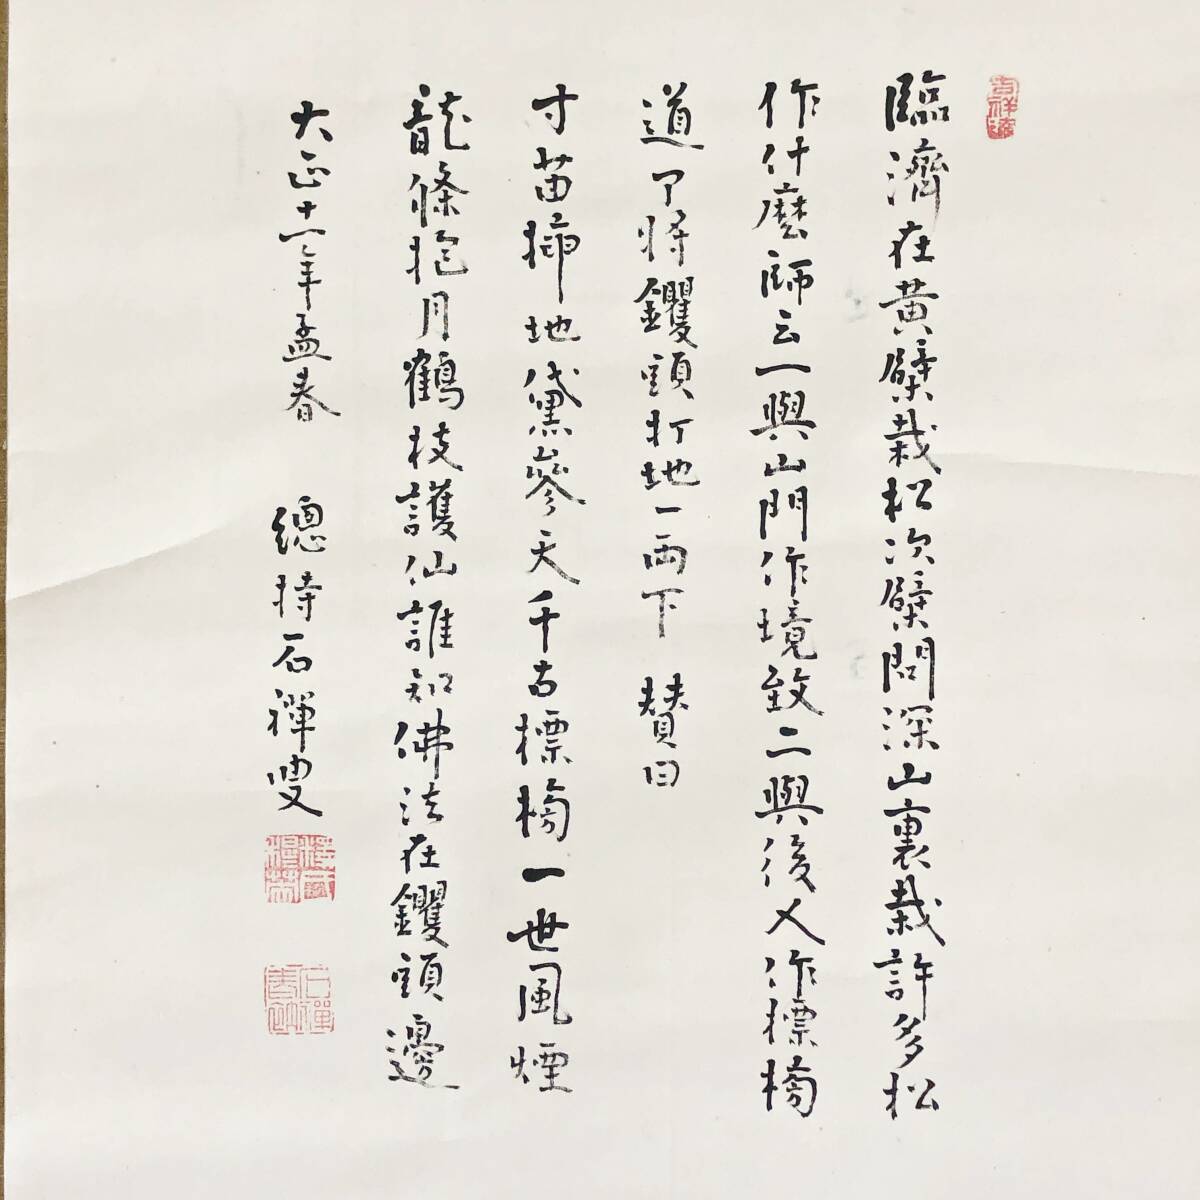 吉祥
臨濟在黄檗栽松次檗問深山裏栽許多松
作什麼師云一與山門作境致二與後人作標榜
道了將钁頭打地一兩下 賛曰
寸苗插地黛參天千古標榜一世風煙
龍條抱月鶴枝護仙誰知佛法在钁頭邊
大正十一年孟春 總持石禪叟
石禪